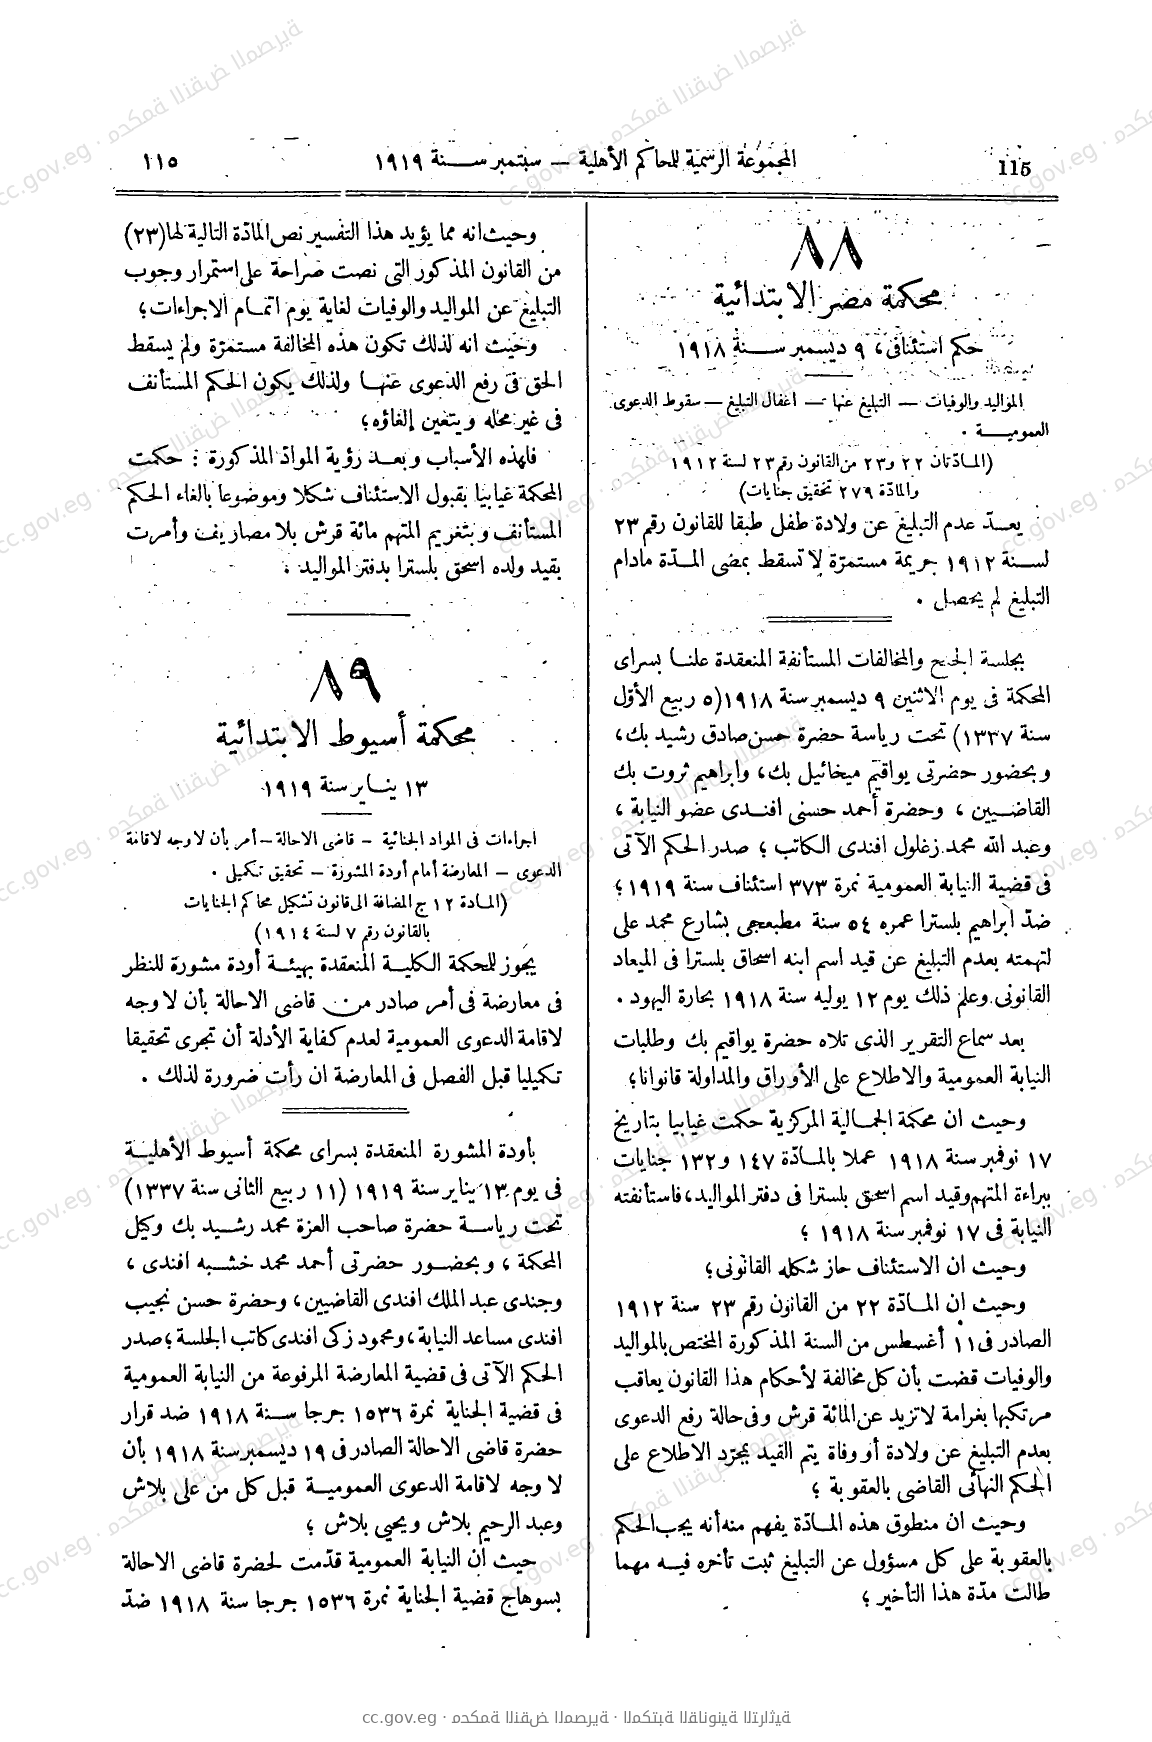 115
المجموعة الرسمية للحاكم الأهلية — سبتمبر سنة ١٩١٩
١١٥
٨٨
محكمة مصر الابتدائية
حكم استئنافى، ٩ ديسمبر سنة ١٩١٨
المواليد والوفيات — التبليغ عنها — اغفال التبليغ — سقوط الدعوى
العمومية .
(المادتان ٢٢ و٢٣ من القانون رقم ٢٣ لسنة ١٩١٢
والمادة ٢٧٩ تحقيق جنايات)
يعدّ عدم التبليغ عن ولادة طفل طبقا للقانون رقم ٢٣
لسنة ١٩١٢ جريمة مستمرّة لا تسقط بمضى المدّة مادام
التبليغ لم يحصل .
بجلسة الجنح والمخالفات المستأنفة المنعقدة علنا بسراى
المحكمة فى يوم الاثنين ٩ ديسمبر سنة ١٩١٨ (٥ ربيع الأوّل
سنة ١٣٣٧) تحت رياسة حضرة حسن صادق رشيد بك،
وبحضور حضرتى يواقيم ميخائيل بك، وابراهيم ثروت بك
القاضيين ، وحضرة أحمد حسنى افندى عضو النيابة ،
وعبد الله محمد زغلول افندى الكاتب ؛ صدر الحكم الآتى
فى قضية النيابة العمومية نمرة ٣٧٣ استئناف سنة ١٩١٩ ؛
ضدّ ابراهيم بلسترا عمره ٥٤ سنة مطبعجى بشارع محمد على
لتهمته بعدم التبليغ عن قيد اسم ابنه اسحاق بلسترا فى الميعاد
القانونى وعلم ذلك يوم ١٢ يوليه سنة ١٩١٨ بحارة اليهود .
بعد سماع التقرير الذى تلاه حضرة يواقيم بك وطلبات
النيابة العمومية والاطلاع على الأوراق والمداولة قانونا؛
وحيث ان محكمة الجمالية المركزية حكمت غيابيا بتاريخ
١٧ نوفمبر سنة ١٩١٨ عملا بالمادّة ١٤٧ و١٣٢ جنايات
ببراءة المتهم وقيد اسم اسحق بلسترا فى دفتر المواليد، فاستأنفته
النيابة فى ١٧ نوفمبر سنة ١٩١٨ ؛
وحيث ان الاستئناف حاز شكله القانونى؛
وحيث ان المادّة ٢٢ من القانون رقم ٢٣ سنة ١٩١٢
الصادر فى ١١ أغسطس من السنة المذكورة المختص بالمواليد
والوفيات قضت بأن كل مخالفة لأحكام هذا القانون يعاقب
مرتكبها بغرامة لا تزيد عن المائة قرش وفى حالة رفع الدعوى
بعدم التبليغ عن ولادة أو وفاة يتم القيد بمجرّد الاطلاع على
الحكم النهائى القاضى بالعقوبة ؛
وحيث ان منطوق هذه المادّة يفهم منه أنه يجب الحكم
بالعقوبة على كل مسؤول عن التبليغ ثبت تأخره فيه مهما
طالت مدّة هذا التأخير ؛
وحيث انه مما يؤيد هذا التفسير نص المادّة التالية لها (٢٣)
من القانون المذكور التى نصت صراحة على استمرار وجوب
التبليغ عن المواليد والوفيات لغاية يوم اتمام الاجراءات؛
وحيث انه لذلك تكون هذه المخالفة مستمرّة ولم يسقط
الحق فى رفع الدعوى عنها ولذلك يكون الحكم المستأنف
فى غير محله ويتعين إلغاؤه؛
فلهذه الأسباب وبعد رؤية الموادّ المذكورة : حكمت
المحكمة غيابيا بقبول الاستئناف شكلا وموضوعا بالغاء الحكم
المستأنف وبتغريم المتهم مائة قرش بلا مصاريف وأمرت
بقيد ولده اسحق بلسترا بدفتر المواليد .
٨٩
محكمة أسيوط الابتدائية
١٣ يناير سنة ١٩١٩
اجراءات فى المواد الجنائية — قاضى الاحالة — أمر بأن لا وجه لاقامة
الدعوى — المعارضة أمام أودة المشورة — تحقيق تكميلى .
(المادة ١٢ ج المضافة الى قانون تشكيل محاكم الجنايات
بالقانون رقم ٧ لسنة ١٩١٤)
يجوز للحكمة الكلية المنعقدة بهيئة أودة مشورة للنظر
فى معارضة فى أمر صادر من قاضى الاحالة بأن لا وجه
لاقامة الدعوى العمومية لعدم كفاية الأدلة أن تجرى تحقيقا
تكميليا قبل الفصل فى المعارضة ان رأت ضرورة لذلك .
بأودة المشورة المنعقدة بسراى محكمة أسيوط الأهلية
فى يوم ١٣ يناير سنة ١٩١٩ (١١ ربيع الثانى سنة ١٣٣٧)
تحت رياسة حضرة صاحب العزة محمد رشيد بك وكيل
المحكمة ، وبحضور حضرتى أحمد محمد خشبه افندى ،
وجندى عبد الملك افندى القاضيين، وحضرة حسن نجيب
افندى مساعد النيابة، ومحمود زكى افندى كاتب الجلسة ؛ صدر
الحكم الآتى فى قضية المعارضة المرفوعة من النيابة العمومية
فى قضية الجناية نمرة ١٥٣٦ جرجا سنة ١٩١٨ ضد قرار
حضرة قاضى الاحالة الصادر فى ١٩ ديسمبر سنة ١٩١٨ بأن
لا وجه لاقامة الدعوى العمومية قبل كل من على بلاش
وعبد الرحيم بلاش ويحيى بلاش ؛
حيث ان النيابة العمومية قدّمت لحضرة قاضى الاحالة
بسوهاج قضية الجناية نمرة ١٥٣٦ جرجا سنة ١٩١٨ ضدّ
cc.gov.eg · محكمة النقض المصرية · المكتبة القانونية التراثية